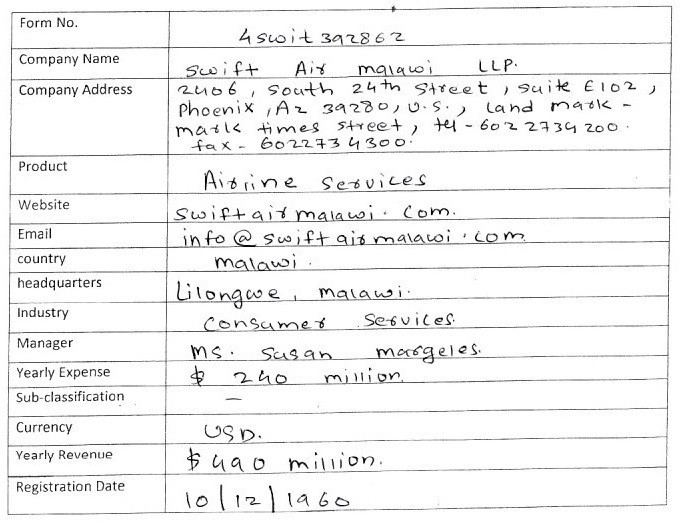 Form No. 4swit392862
Company Name Swift Air malawi LLP.
Company Address 2406, South 24th Street, Suite E102,
Phoenix, Az 39280, U.S., Land mark -
mark times street, tel - 602 2734 200.
fax - 6022734300.
Product Airline Services
Website swiftairmalawi.com.
Email info@swiftairmalawi.com
country malawi.
headquarters Lilongwe, malawi.
Industry Consumer Services.
Manager Ms. Susan margeles.
Yearly Expense $ 240 million.
Sub-classification —
Currency USD.
Yearly Revenue $490 million.
Registration Date 10/12/1960